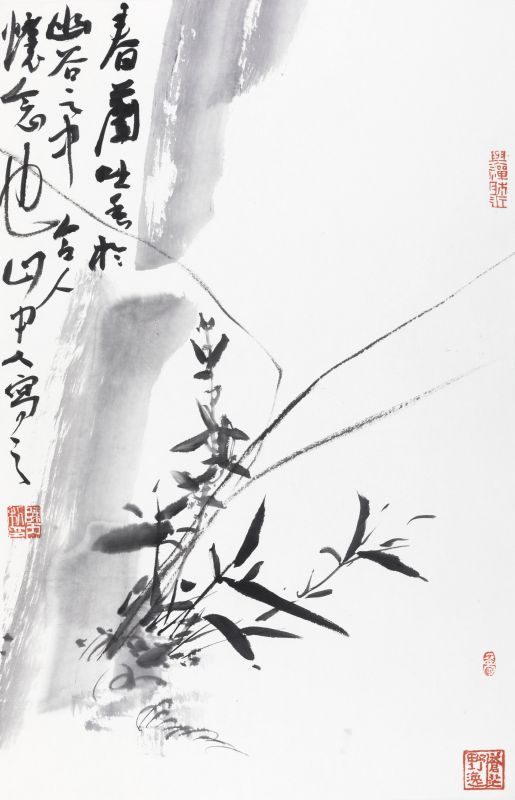 春蘭吐香於
幽谷之中令人
懷念也山中人寫之
蒼茫
野逸